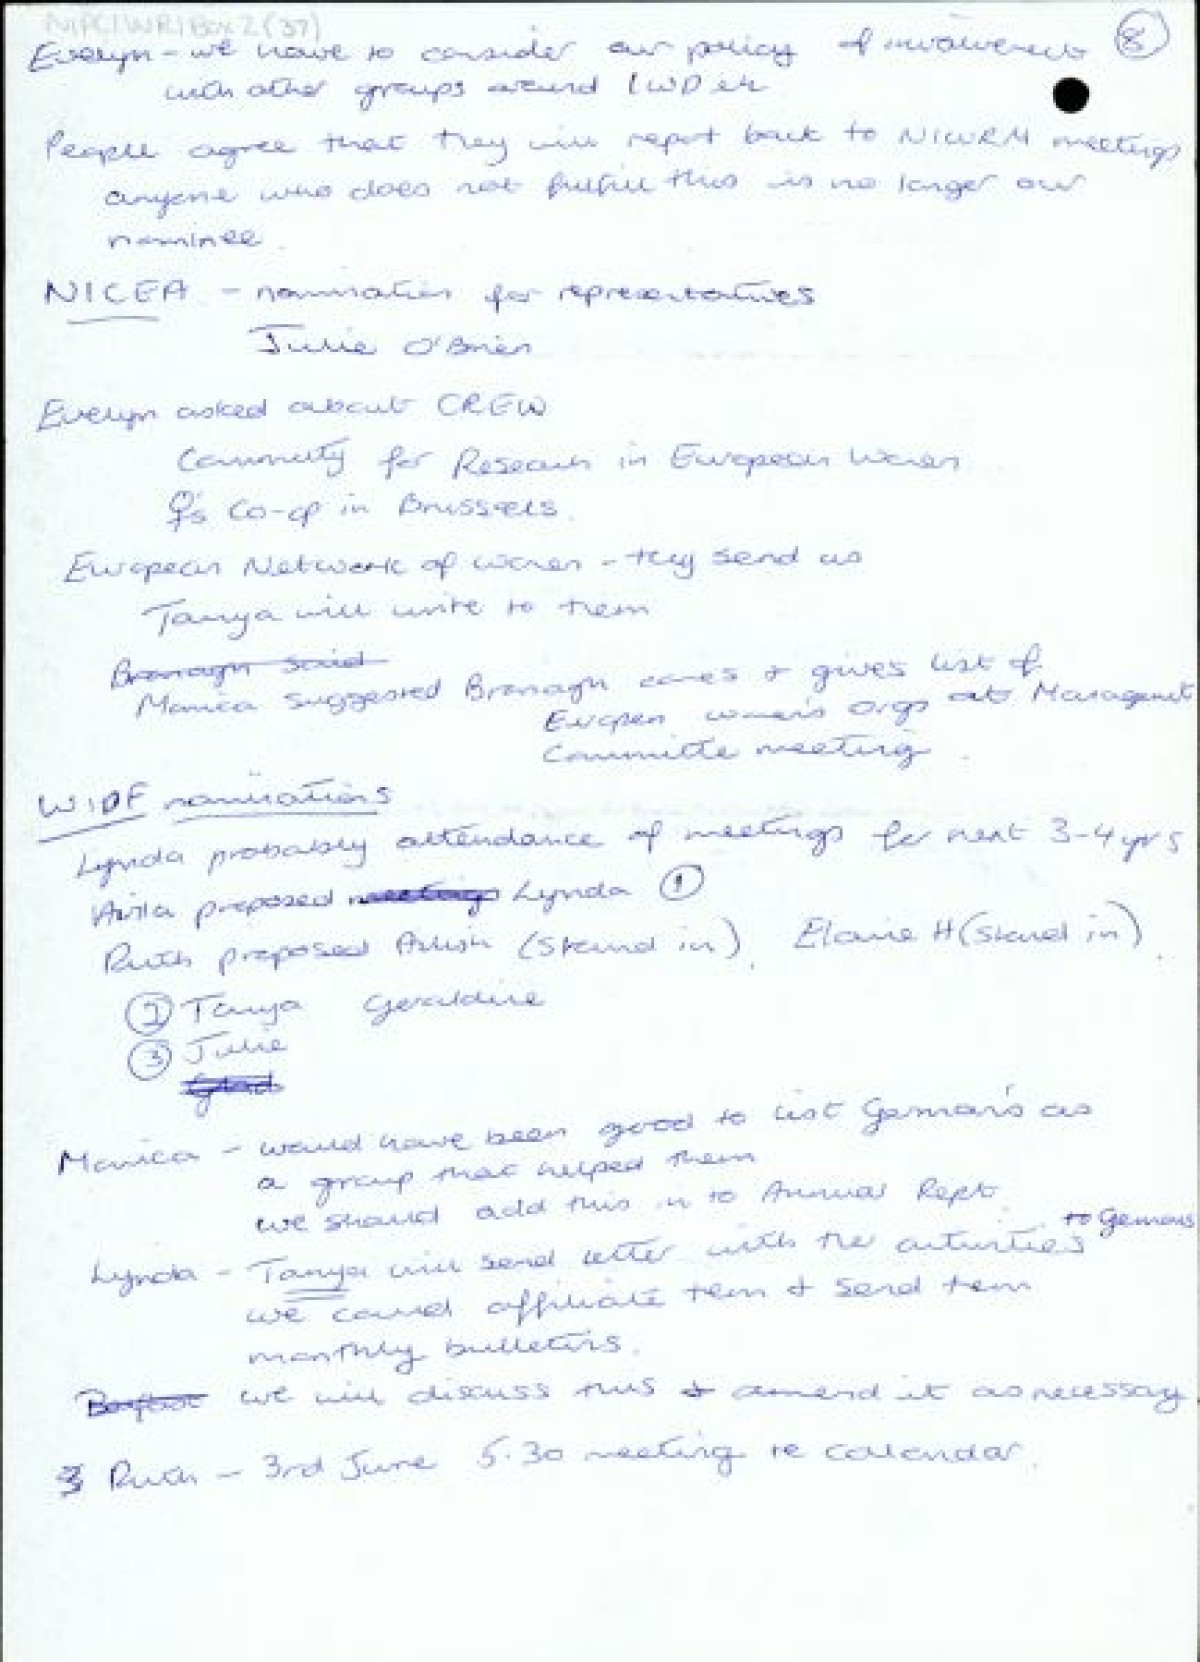 NIPC/WR/Box 2 (37)
8
Evelyn - we have to consider our policy of involvement
with other groups around IWD etc
People agree that they will report back to NIWRM meetings
anyone who does not fulfill this is no longer our
nominee.
NICEA - nomination for representatives
Julie O'Brien
Evelyn asked about CREW
Community for Research in European Women
♀'s Co-op in Brussels.
European Network of women - they send us
Tanya will write to them
Bronagh said
Monica suggested Bronagh comes & gives list of
European women's orgs at Management
Committe meeting.
WIDF nominations
Lynda probably attendance of meetings for next 3-4 yrs
Avila proposed meetings Lynda ①
Ruth proposed Ailish (Stand in). Elaine H (Stand in).
② Tanya Geraldine
③ Julie
Monica - would have been good to list Gemma's as
a group that helped them
we should add this in to Annual Rept.
Lynda - Tanya will send letter with the activities to Gemmas
we could affiliate tem & send tem
monthly bulletins.
we will discuss this & amend it as necessary
Ruth - 3rd June 5.30 meeting re calendar.